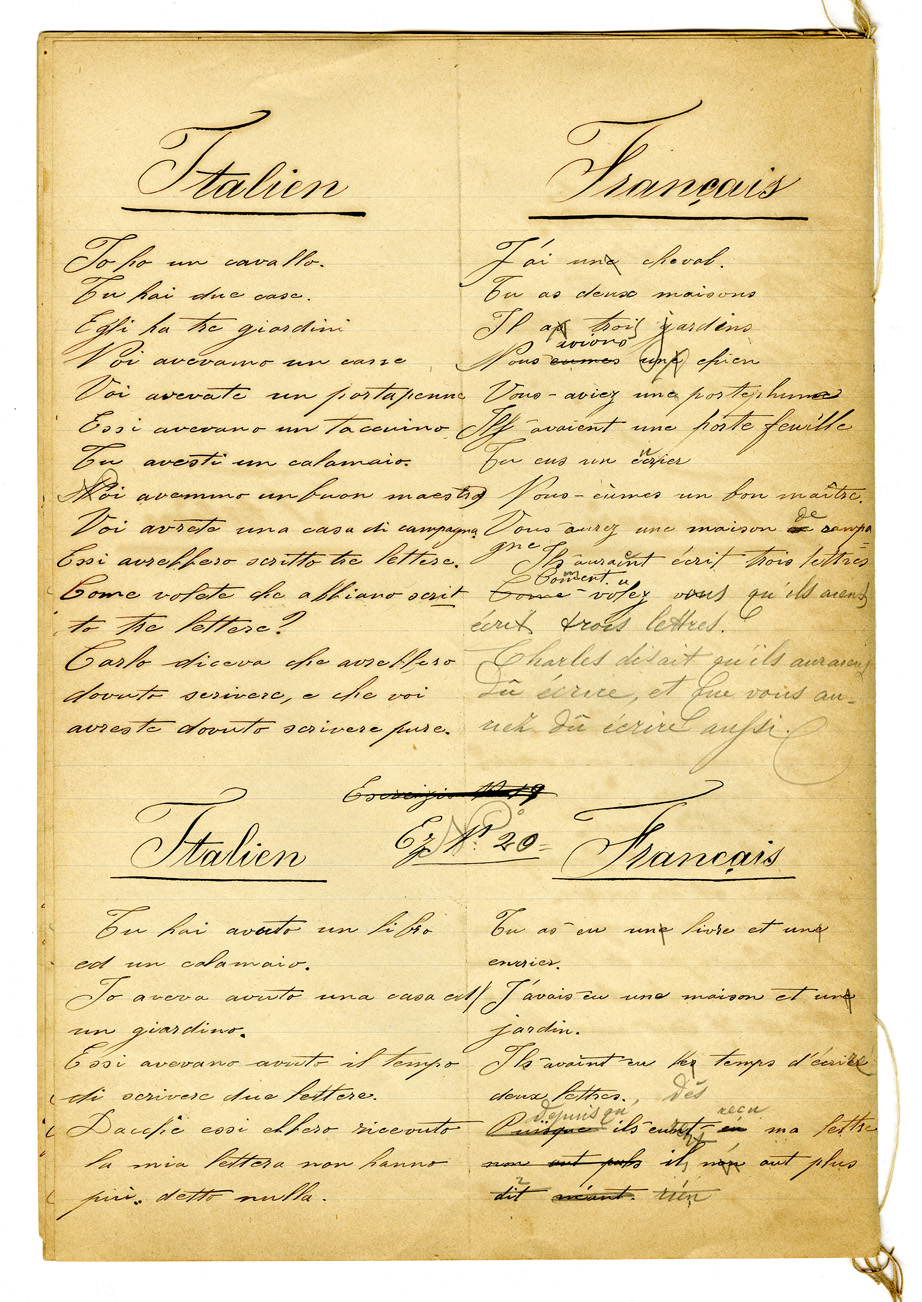 Italien
Io ho un cavallo.
Tu hai due case.
Egli ha tre giardini
Noi avevamo un casse
Voi avevate un portapenne
Essi avevano un taccuino
Tu avesti un calamaio.
Noi avemmo un buon maestro
Voi avrete una casa di campagna
Essi avrebbero scritto tre lettere.
Come volete che abbiano scrit
to tre lettere?
Carlo diceva che avrebbero
dovuto scrivere, e che voi
avreste dovuto scrivere pure.
Français
J'ai une cheval.
Tu as deux maisons
Il as trois jardins
avions
Nous eumes une chien
Vous-aviez une portephume
Ils avaient une porte feuille
Tu eus un encrier
Nous-eûmes un bon maître.
Vous aurez une maison de campa
gne
Ils auraint écrit trois lettres
Coment
Come volez vous qu'ils aient
écrit trois lettres.
Charles disait qu'ils auraient
dû écrire, et que vous au-
riez dû écrire aussi.
Esercizio N 19
Ez. N° 20
Italien
Tu hai avuto un libro
ed un calamaio.
Io aveva avuto una casa ed
un giardino.
Essi avevano avuto il tempo
di scrivere due lettere.
Dacchè essi ebbero ricevuto
la mia lettera non hanno
piú detto nulla.
Français
Tu as eu une livre et une
encrier.
J'avais eu une maison et une
jardin.
Ils avaint eu les temps d'écrire
deux lettres. Dès
Depuis qu reçu
Puisque ils eurent eu ma lettre
non ont pas il non ont plus
dit néant. rien